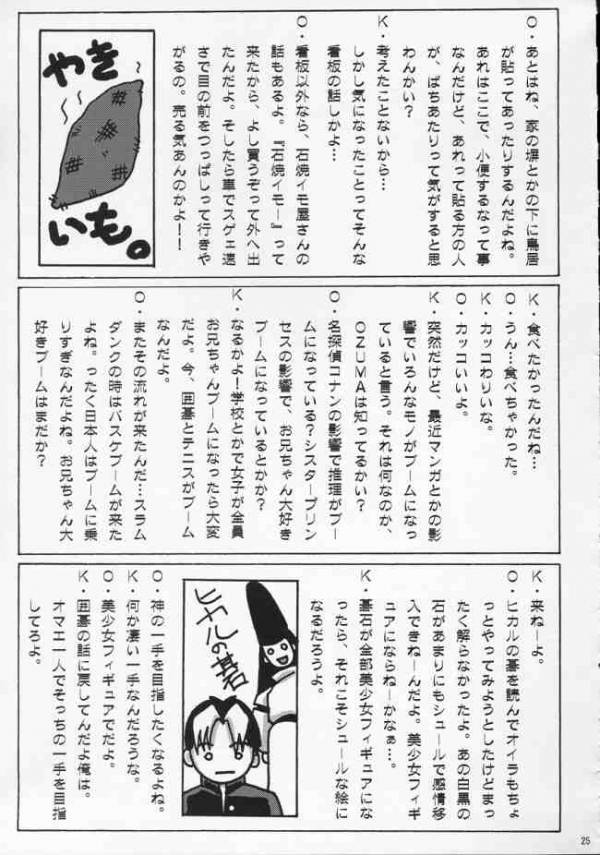 O・あとはね、家の塀とかの下に鳥居
が貼ってあったりするんだよね。
あれはここで、小便するなって事
なんだけど、あれって貼る方の人
が、ばちあたりって気がすると思
わんかい？
K・考えたことないから…
しかし気になったことってそんな
看板の話しかよ…
O・看板以外なら、石焼イモ屋さんの
話もあるよ。『石焼イモー』って
来たから、よし買うぞって外へ出
たんだよ。そしたら車でスゲェ遠
さで目の前をつっぱしって行きや
がるの。売る気あんのかよ！！
やき
いも。
K・食べたかったんだね…
O・うん…食べちゃかった。
K・カッコわりいな。
O・カッコいいよ。
K・突然だけど、最近マンガとかの影
響でいろんなモノがブームになっ
ていると言う。それは何なのか、
OZUMAは知ってるかい？
O・名探偵コナンの影響で推理がブー
ムになっている？シスタープリン
セスの影響で、お兄ちゃん大好き
ブームになっているとかか？
K・なるかよ！学校とかで女子が全員
お兄ちゃんブームになったら大変
だよ。今、囲碁とテニスがブーム
なんだよ。
O・またその流れが来たんだ…スラム
ダンクの時はバスケブームが来た
よね。ったく日本人はブームに乗
りすぎなんだよね。お兄ちゃん大
好きブームはまだか？
K・来ねーよ。
O・ヒカルの碁を読んでオイラもちょ
っとやってみようとしたけどまっ
たく解らなかったよ。あの白黒の
石があまりにもシュールで感情移
入できねーんだよ。美少女フィギ
ュアにならねーかなぁ…。
K・碁石が全部美少女フィギュアにな
ったら、それこそシュールな絵に
なるだろうよ。
ヒカルの碁
O・神の一手を目指したくなるよね。
K・何か凄い一手なんだろうな。
O・美少女フィギュアでだよ。
K・囲碁の話に戻してんだよ俺は。
オマエ一人でそっちの一手を目指
してろよ。
25